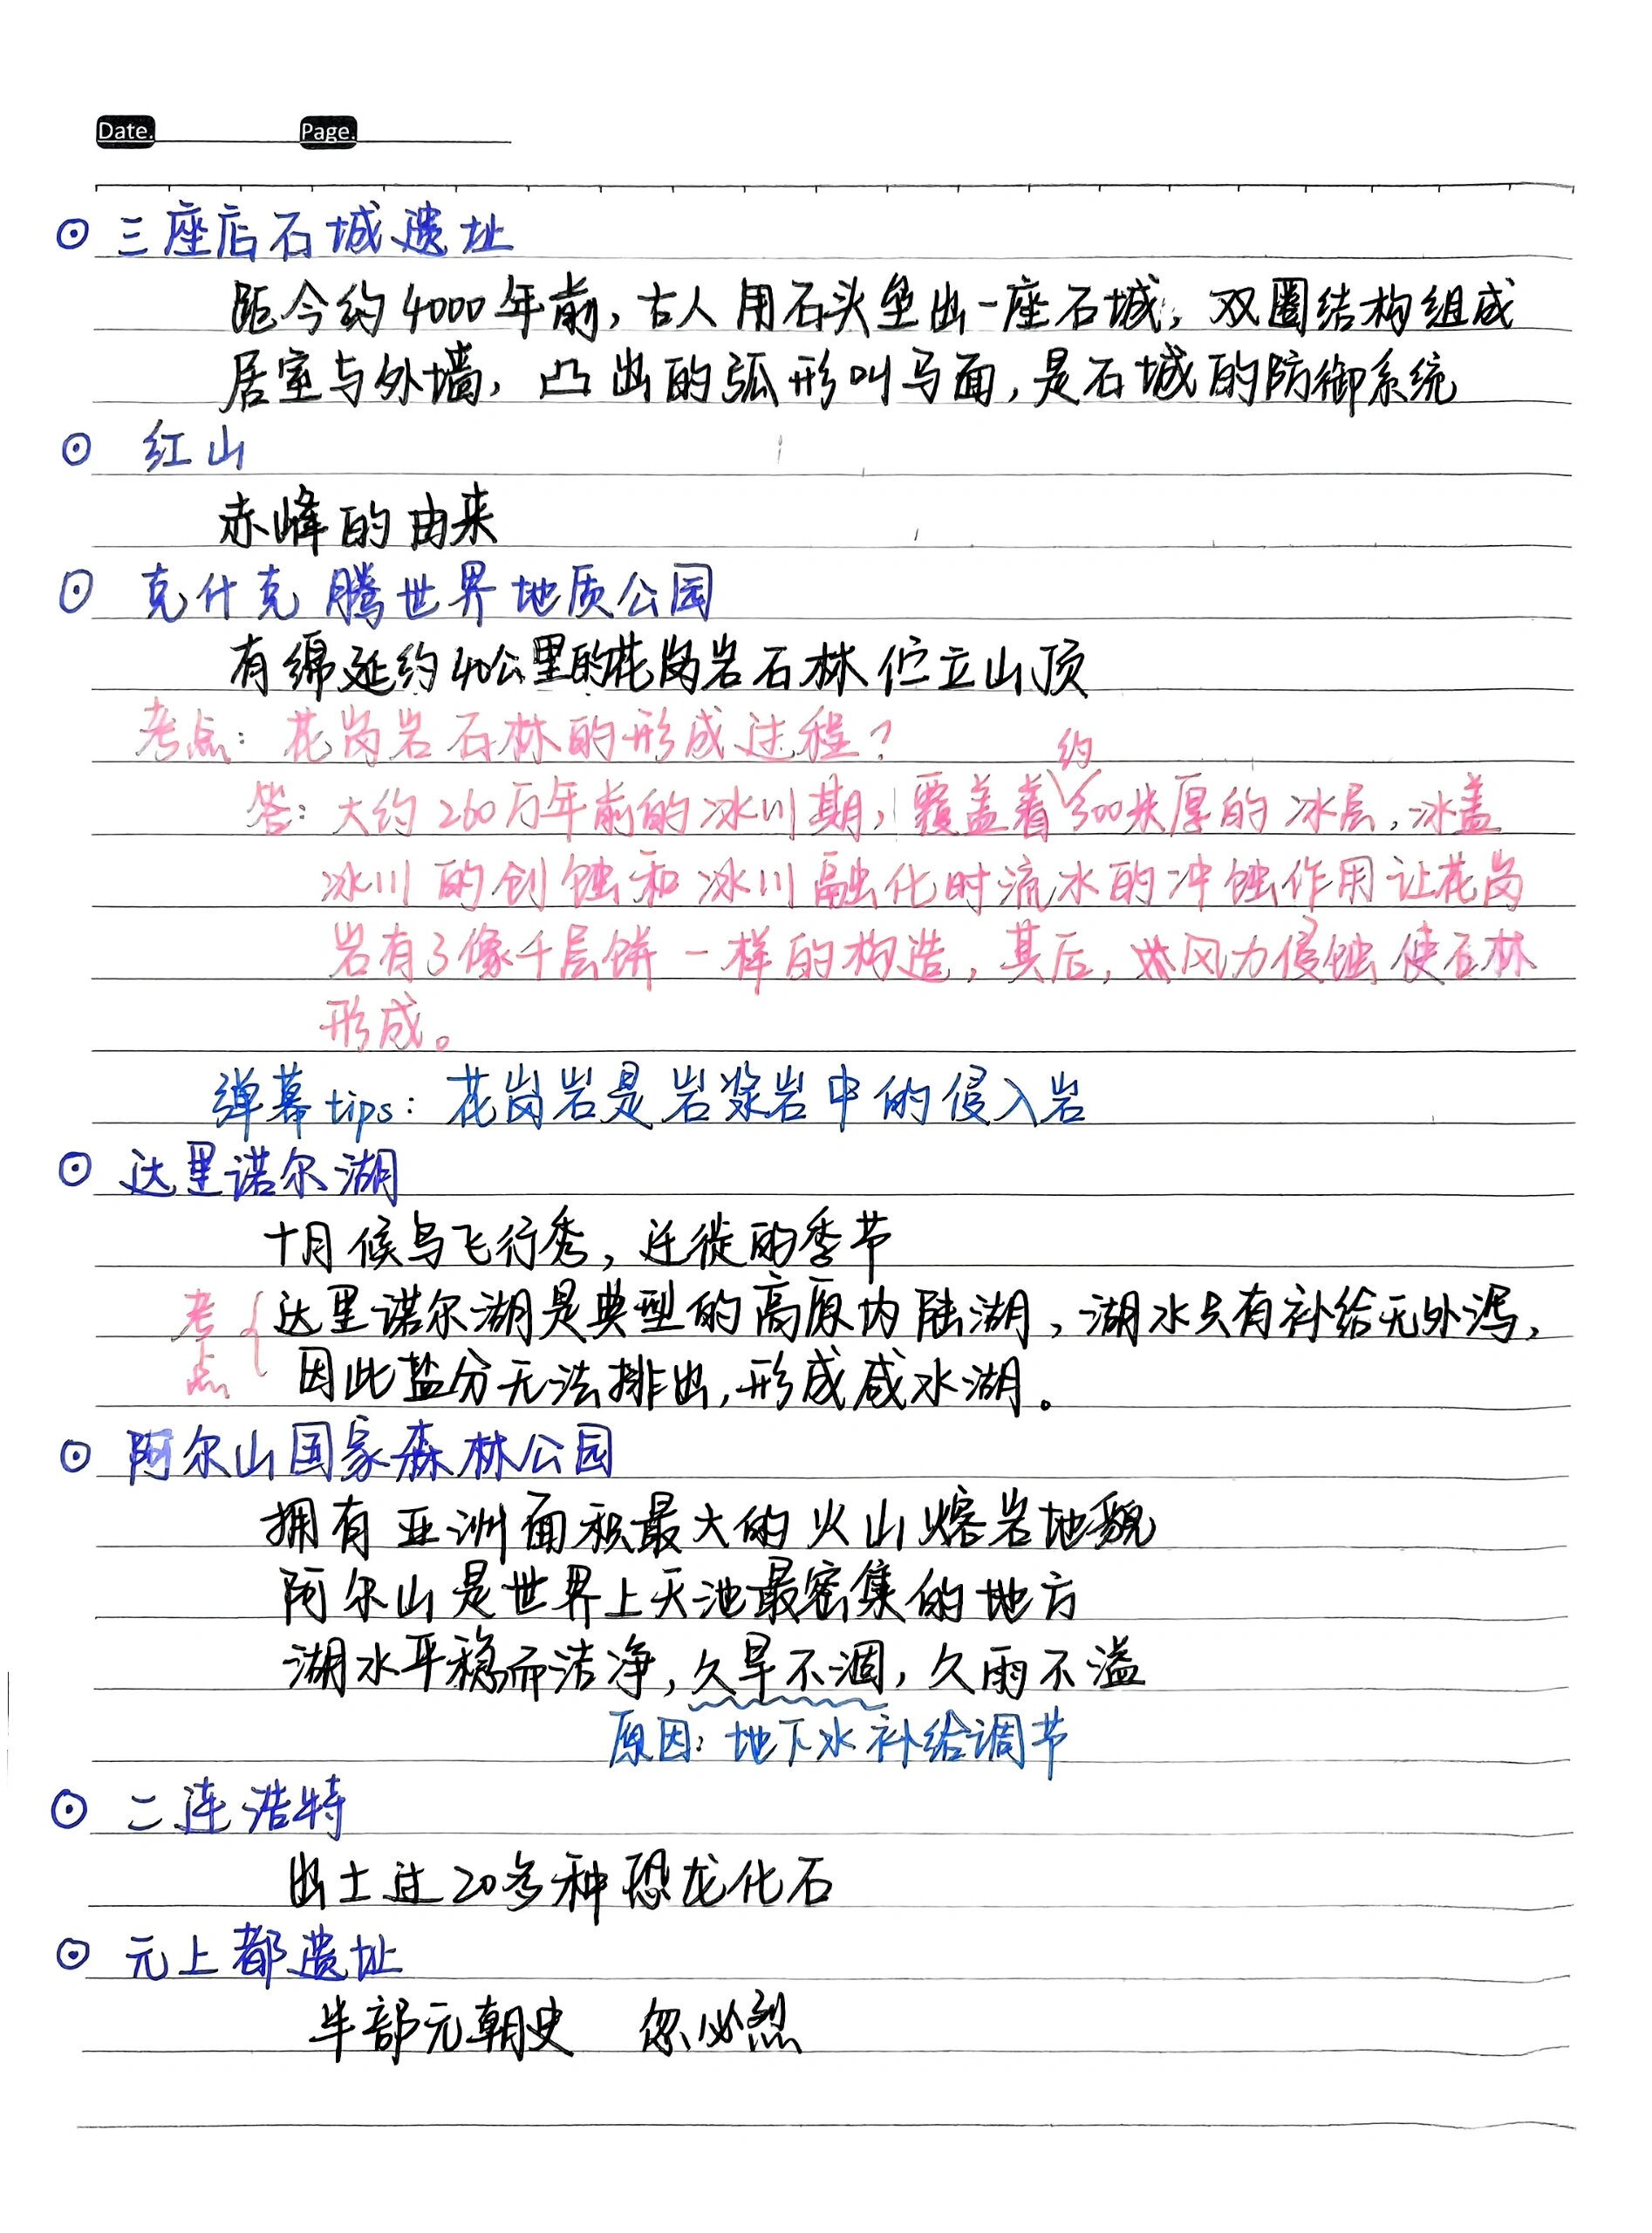 Date. Page.
⊙ 三座店石城遗址
距今约4000年前，古人用石头垒出一座石城，双圈结构组成
居室与外墙，凸出的弧形叫马面，是石城的防御系统
⊙ 红山
赤峰的由来
⊙ 克什克腾世界地质公园
有绵延约40公里的花岗岩石林伫立山顶
考点：花岗岩石林的形成过程？
答：大约260万年前的冰川期，覆盖着约300米厚的冰层，冰盖
冰川的刨蚀和冰川融化时流水的冲蚀作用让花岗
岩有了像千层饼一样的构造，其后，风力侵蚀使石林
形成。
弹幕tips：花岗岩是岩浆岩中的侵入岩
⊙ 达里诺尔湖
十月候鸟飞行秀，迁徙的季节
考点{达里诺尔湖是典型的高原内陆湖，湖水只有补给无外泻，
因此盐分无法排出，形成咸水湖。
⊙ 阿尔山国家森林公园
拥有亚洲面积最大的火山熔岩地貌
阿尔山是世界上天池最密集的地方
湖水平稳而洁净，久旱不涸，久雨不溢
原因：地下水补给调节
⊙ 二连浩特
出土过20多种恐龙化石
⊙ 元上都遗址
半部元朝史 忽必烈